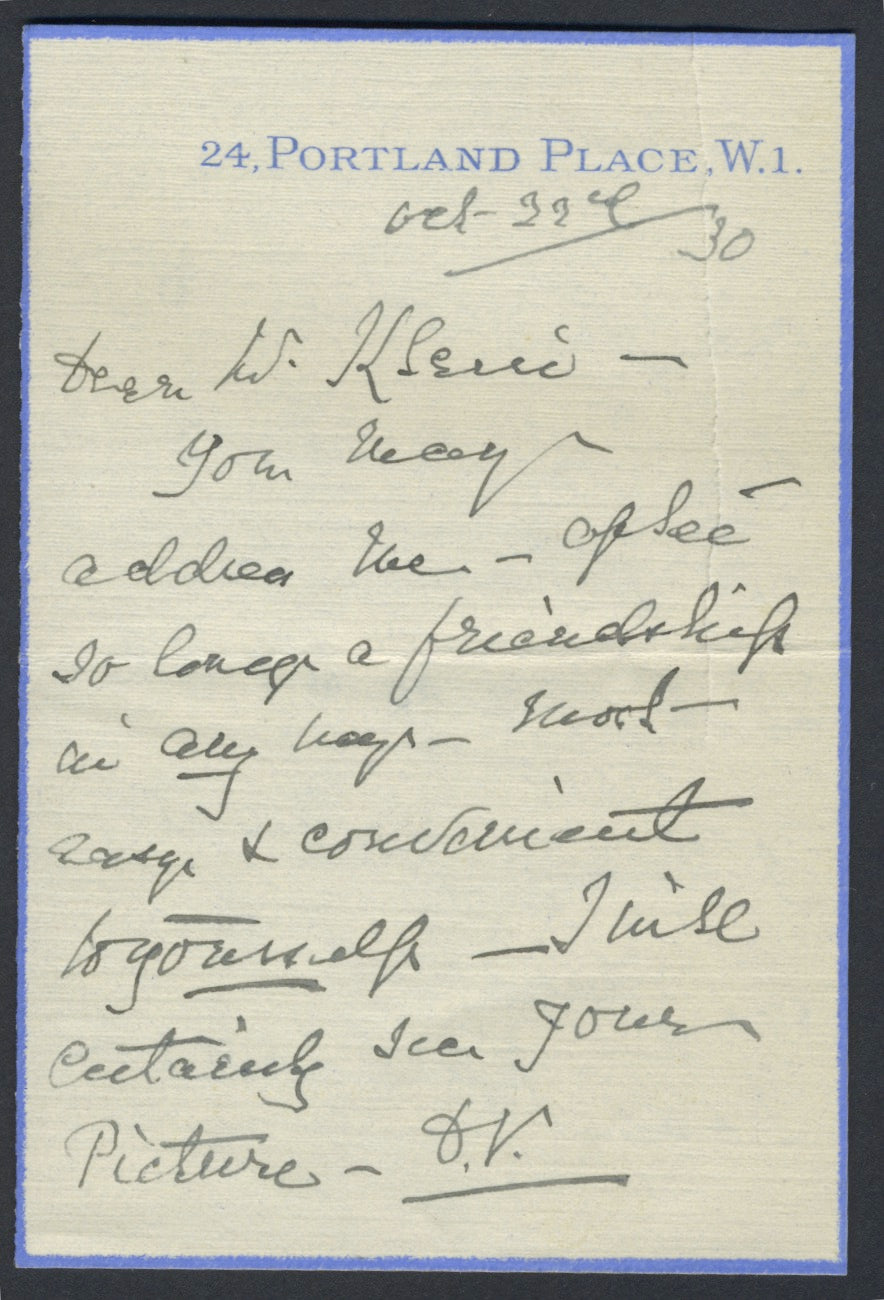 24, PORTLAND PLACE, W.1.
Oct 22nd
30
Dear W.
You may
address me - after
so long a friendship
in any way - most
easy & convenient
to yourself - I will
certainly see your
Picture - D.V.